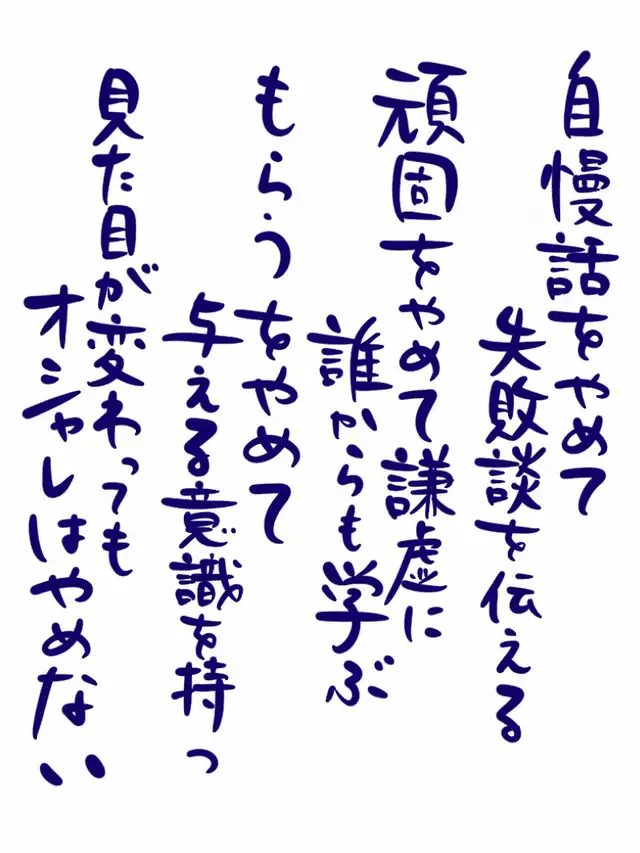 自慢話をやめて
失敗談を伝える
頑固をやめて謙虚に
誰からも学ぶ
もらうをやめて
与える意識を持つ
見た目が変わっても
オシャレはやめない